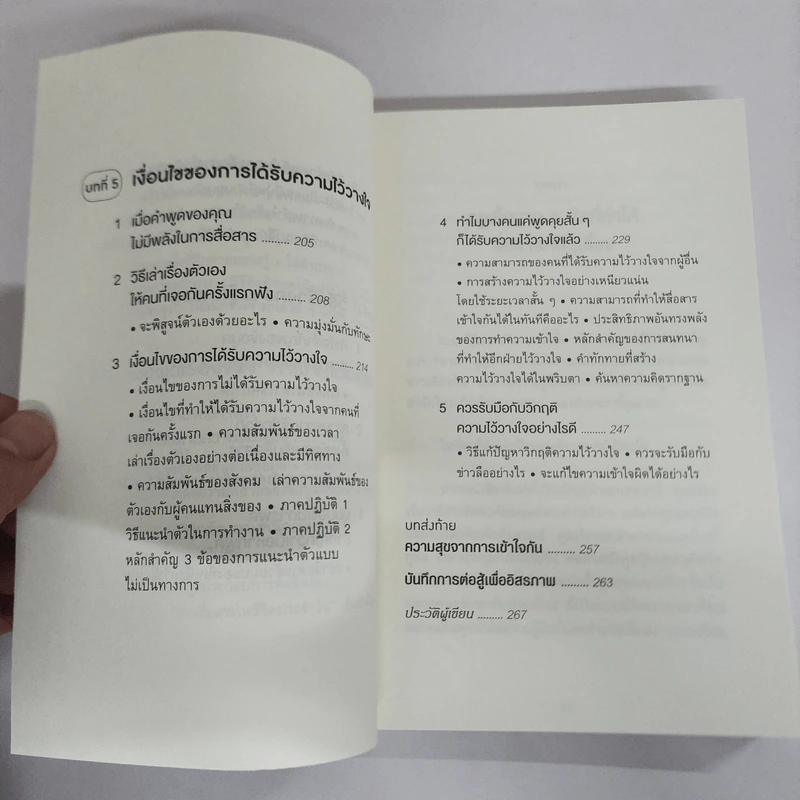 บทที่ 5 เงื่อนไขของการได้รับความไว้วางใจ
1 เมื่อคำพูดของคุณ
ไม่มีพลังในการสื่อสาร ......... 205
2 วิธีเล่าเรื่องตัวเอง
ให้คนที่เจอกันครั้งแรกฟัง ......... 208
• จะพิสูจน์ตัวเองด้วยอะไร • ความมุ่งมั่นกับทักษะ
3 เงื่อนไขของการได้รับความไว้วางใจ ......... 214
• เงื่อนไขของการไม่ได้รับความไว้วางใจ
• เงื่อนไขที่ทำให้ได้รับความไว้วางใจจากคนที่
เจอกันครั้งแรก • ความสัมพันธ์ของเวลา
เล่าเรื่องตัวเองอย่างต่อเนื่องและมีทิศทาง
• ความสัมพันธ์ของสังคม เล่าความสัมพันธ์ของ
ตัวเองกับผู้คนแทนสิ่งของ • ภาคปฏิบัติ 1
วิธีแนะนำตัวในการทำงาน • ภาคปฏิบัติ 2
หลักสำคัญ 3 ข้อของการแนะนำตัวแบบ
ไม่เป็นทางการ
4 ทำไมบางคนแค่พูดคุยสั้น ๆ
ก็ได้รับความไว้วางใจแล้ว ......... 229
• ความสามารถของคนที่ได้รับความไว้วางใจจากผู้อื่น
• การสร้างความไว้วางใจอย่างเหนียวแน่น
โดยใช้ระยะเวลาสั้น ๆ • ความสามารถที่ทำให้สื่อสาร
เข้าใจกันได้ในทันทีคืออะไร • ประสิทธิภาพอันทรงพลัง
ของการทำความเข้าใจ • หลักสำคัญของการสนทนา
ที่ทำให้อีกฝ่ายไว้วางใจ • คำทักทายที่สร้าง
ความไว้วางใจได้ในพริบตา • ค้นหาความคิดรากฐาน
5 ควรรับมือกับวิกฤติ
ความไว้วางใจอย่างไรดี ......... 247
• วิธีแก้ปัญหาวิกฤติความไว้วางใจ • ควรจะรับมือกับ
ข่าวลืออย่างไร • จะแก้ไขความเข้าใจผิดได้อย่างไร
บทส่งท้าย
ความสุขจากการเข้าใจกัน ......... 257
บันทึกการต่อสู้เพื่ออิสรภาพ ......... 263
ประวัติผู้เขียน ......... 267